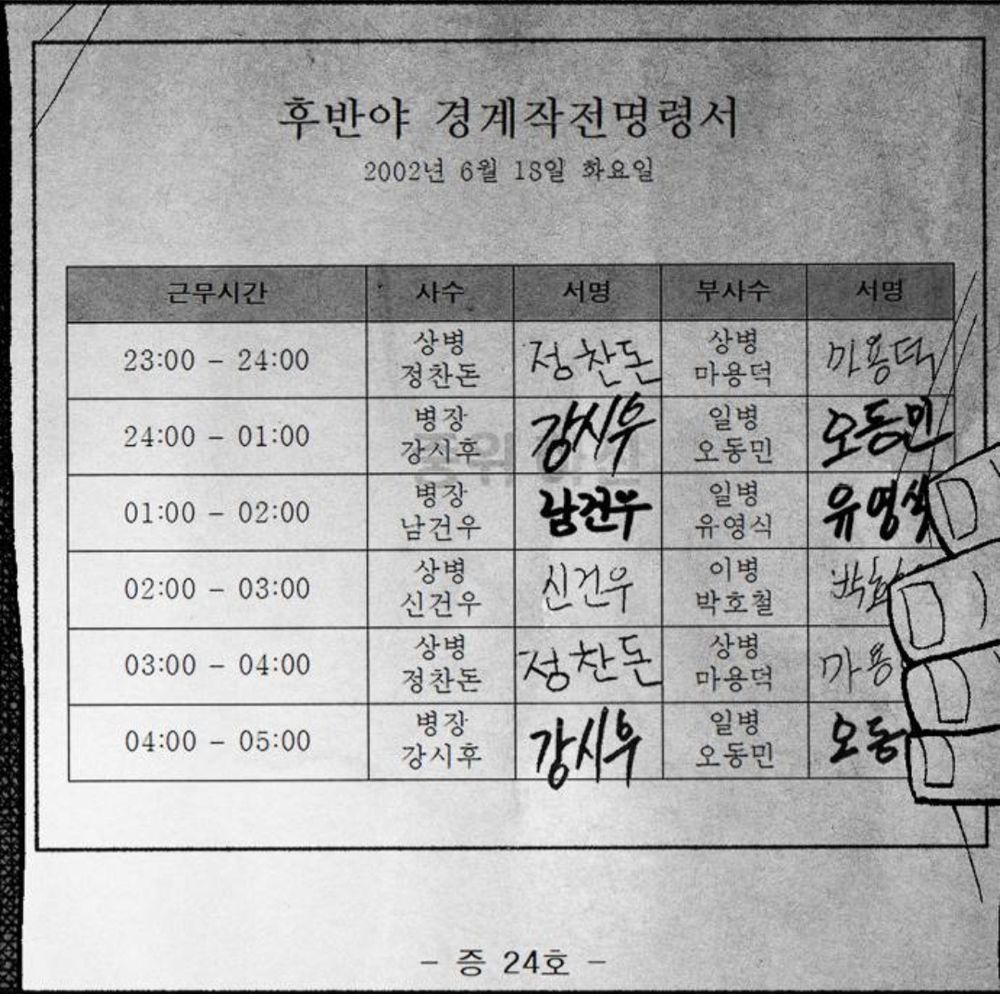 후반야 경계작전명령서
2002년 6월 18일 화요일
근무시간 사수 서명 부사수 서명
23:00 - 24:00 상병 정찬돈 정찬돈 상병 마용덕 마용덕
24:00 - 01:00 병장 강시후 강시후 일병 오동민 오동민
01:00 - 02:00 병장 남건우 남건우 일병 유영식 유영식
02:00 - 03:00 상병 신건우 신건우 이병 박호철 박호
03:00 - 04:00 상병 정찬돈 정찬돈 상병 마용덕 마용
04:00 - 05:00 병장 강시후 강시후 일병 오동민 오동
- 증 24호 -